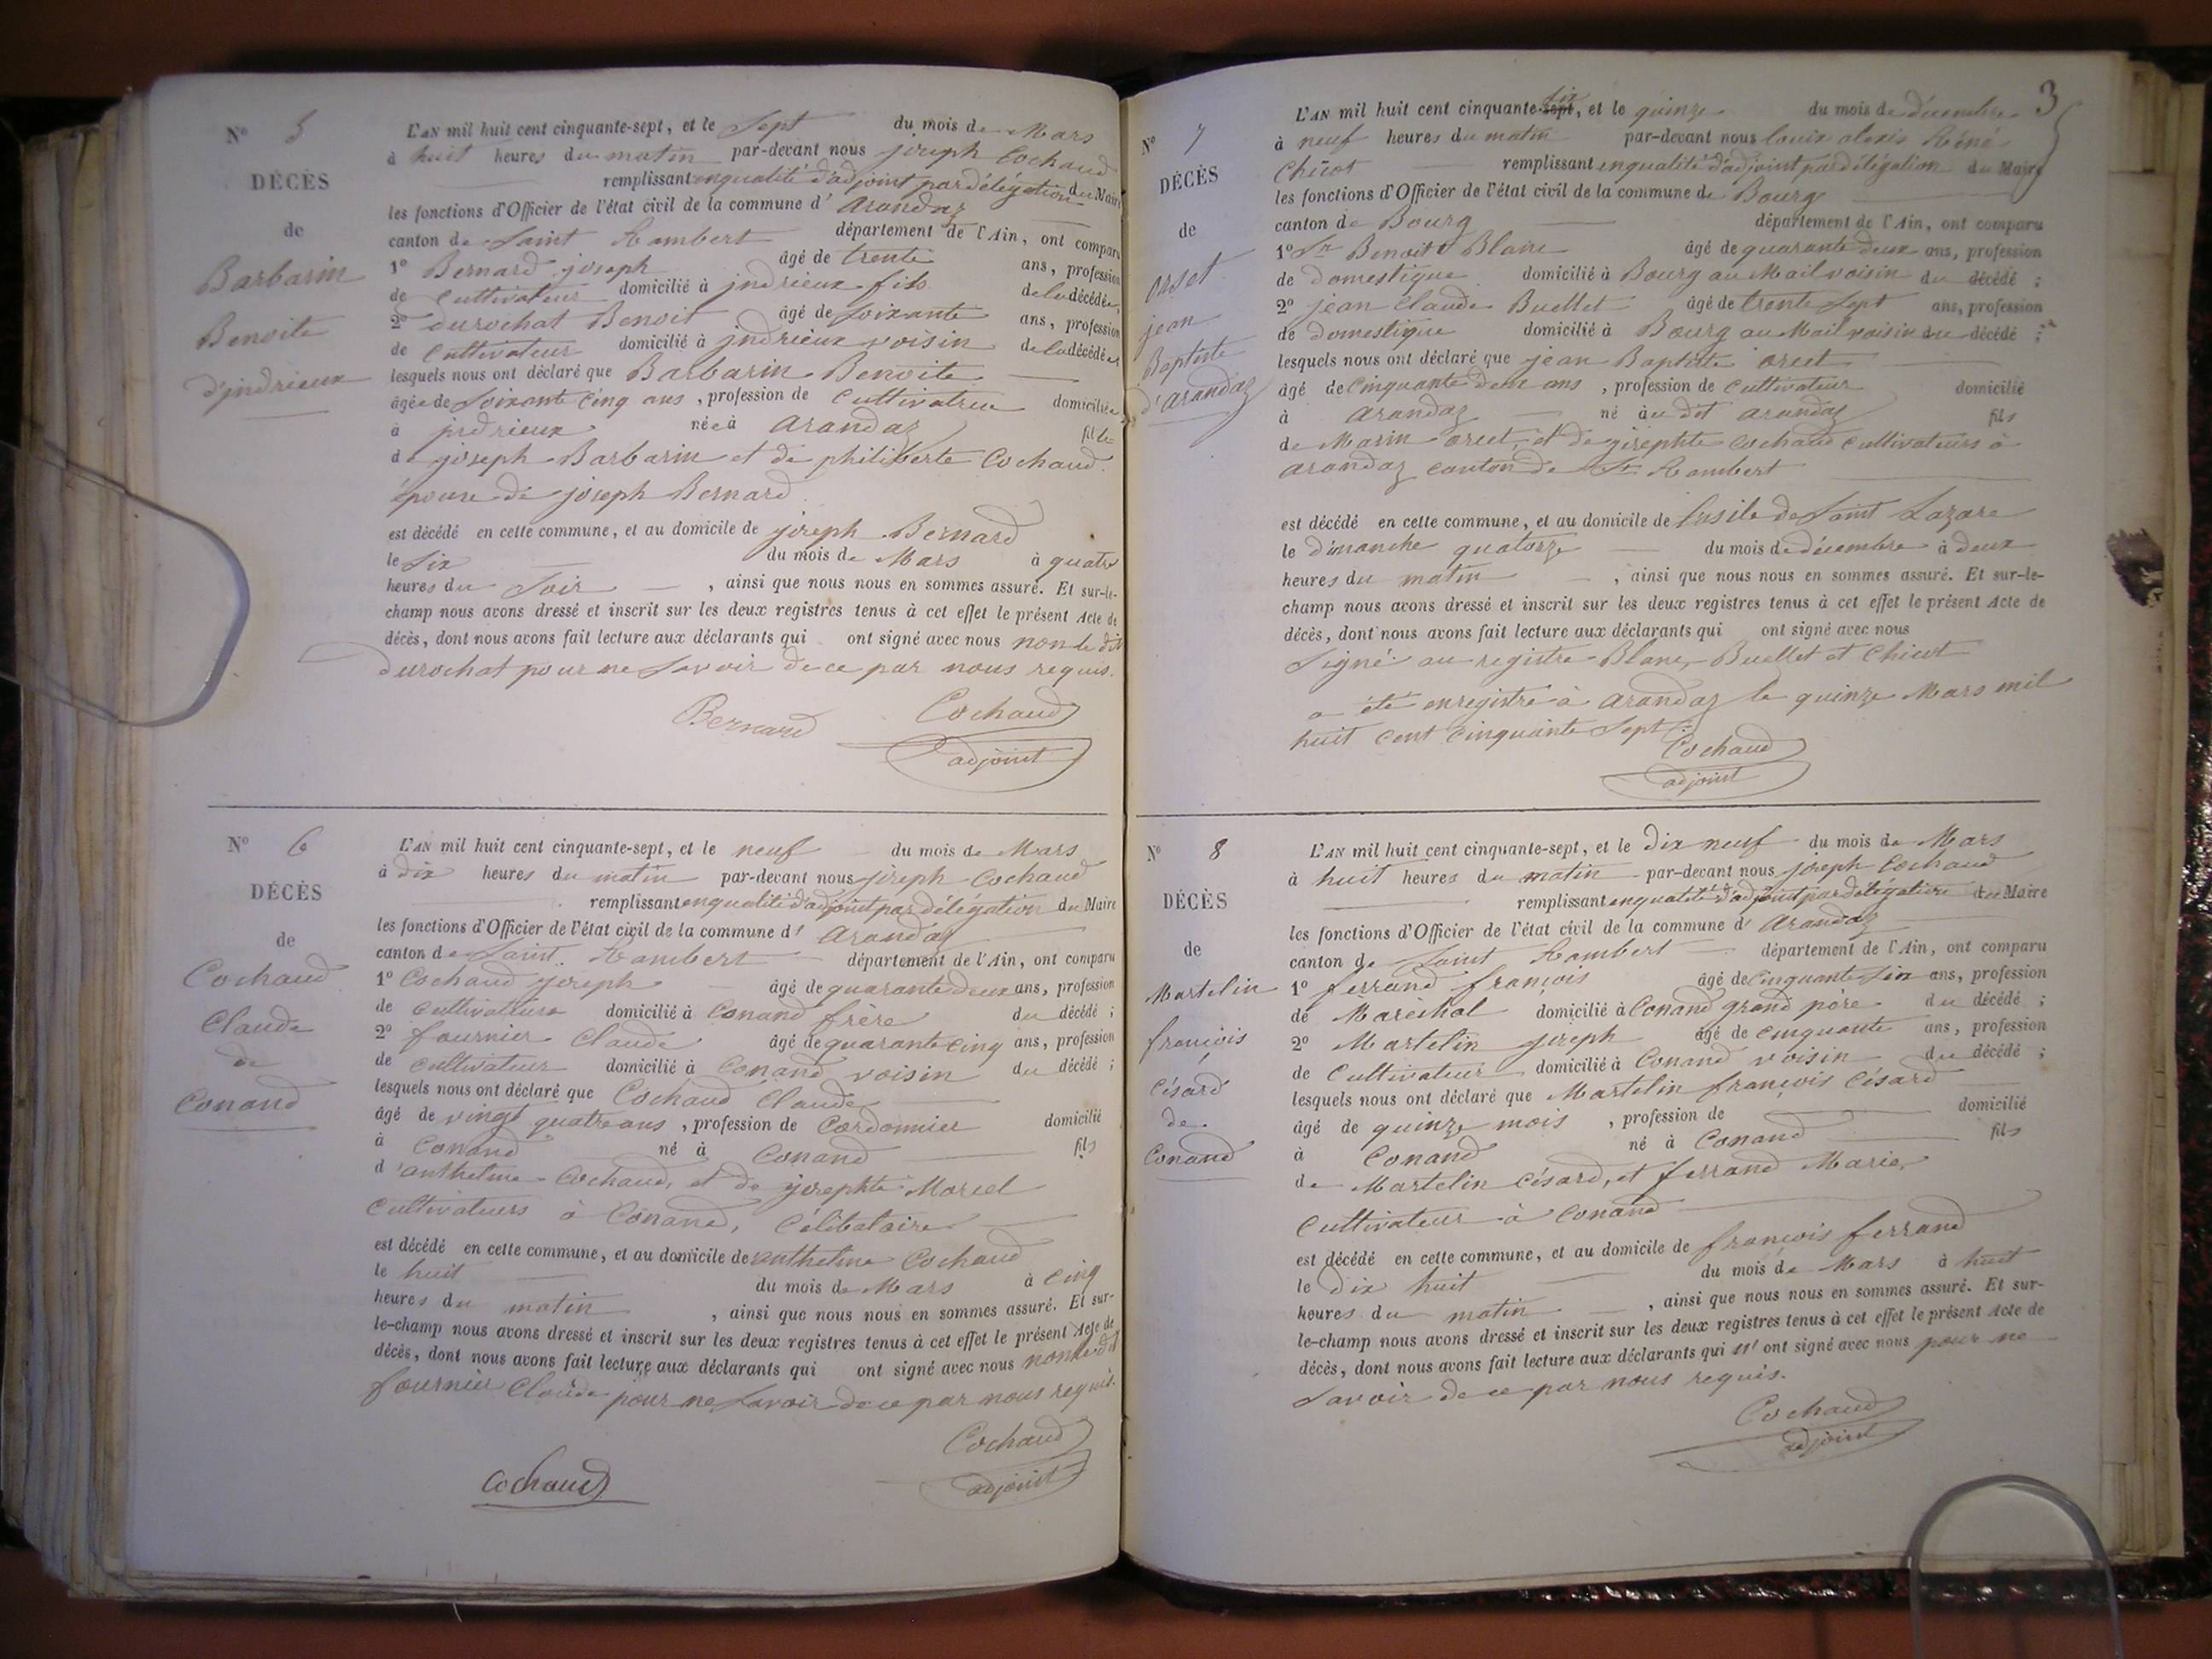 N° 5
DÉCÈS
de
Barbarin
Benoite
d'jndrieux
L'AN mil huit cent cinquante-sept, et le Sept du mois de Mars
à huit heures du matin par-devant nous joseph Cochaud
remplissant enqualité d'adjoint par délégation du Maire
les fonctions d'Officier de l'état civil de la commune d' arandaz
canton de Saint Rambert département de l'Ain, ont comparu
1° Bernard joseph âgé de trente ans, profession
de Cultivateur domicilié à jndrieux fils de la décédée,
2° durochat Benoit âgé de soixante ans, profession
de Cultivateur domicilié à jndrieux voisin de la décédée
lesquels nous ont déclaré que Barbarin Benoite
âgée de Soixante Cinq ans, profession de Cultivatrice domiciliée
à jndrieux née à arandaz fille
de joseph Barbarin et de philiberte Cochaud
épouse de joseph Bernard
est décédé en cette commune, et au domicile de joseph Bernard
le Six du mois de Mars à quatre
heures du Soir, ainsi que nous nous en sommes assuré. Et sur-le-
champ nous avons dressé et inscrit sur les deux registres tenus à cet effet le présent Acte de
décès, dont nous avons fait lecture aux déclarants qui ont signé avec nous non le dit
durochat pour ne Savoir de ce par nous requis.
Bernard Cochaud
adjoint
N° 6
DÉCÈS
de
Cochaud
Claude
de
Conand
L'AN mil huit cent cinquante-sept, et le neuf du mois de Mars
à dix heures du matin par-devant nous joseph Cochaud
remplissant enqualité d'adjoint par délégation du Maire
les fonctions d'Officier de l'état civil de la commune d' Arandaz
canton de Saint Rambert département de l'Ain, ont comparu
1° Cochaud joseph âgé de quarante deux ans, profession
de cultivateur domicilié à Conand frère du décédé ;
2° fournier Claude âgé de quarante cinq ans, profession
de cultivateur domicilié à Conand voisin du décédé ;
lesquels nous ont déclaré que Cochaud Claude
âgé de vingt quatre ans, profession de Cordonnier domicilié
à Conand né à Conand fils
d'anthelme Cochaud, et de josephte Morcel
Cultivateurs à Conand, Célibataire
est décédé en cette commune, et au domicile de anthelme Cochaud
le huit du mois de Mars à cinq
heures du matin, ainsi que nous nous en sommes assuré. Et sur-
le-champ nous avons dressé et inscrit sur les deux registres tenus à cet effet le présent Acte de
décès, dont nous avons fait lecture aux déclarants qui ont signé avec nous non le dit
fournier Claude pour ne Savoir de ce par nous requis.
Cochaud
adjoint
Cochaud
3
N° 7
DÉCÈS
de
orset
jean
Baptiste
d'arandaz
L'AN mil huit cent cinquante-sept six, et le quinze du mois de décembre
à neuf heures du matin par-devant nous louis alexis Réné
Chicot remplissant enqualité d'adjoint par délégation du Maire
les fonctions d'Officier de l'état civil de la commune de Bourg
canton de Bourg département de l'Ain, ont comparu
1° Sr Benoit Blanc âgé de quarante deux ans, profession
de domestique domicilié à Bourg au Mail voisin du décédé ;
2° jean Claude Buellet âgé de trente Sept ans, profession
de domestique domicilié à Bourg au Mail voisin du décédé ;
lesquels nous ont déclaré que jean Baptiste orcet
âgé de Cinquante deux ans, profession de Cultivateur domicilié
à arandaz né au dit arandaz fils
de Marin orcet, et de josephte Cochaud cultivateurs à
arandaz canton de St Rambert
est décédé en cette commune, et au domicile de l'asile de Saint Lazare
le dimanche quatorze du mois de décembre à deux
heures du matin, ainsi que nous nous en sommes assuré. Et sur-le-
champ nous avons dressé et inscrit sur les deux registres tenus à cet effet le présent Acte de
décès, dont nous avons fait lecture aux déclarants qui ont signé avec nous
Signé au registre Blanc, Buellet et Chicot
a été enregistré à arandaz le quinze Mars mil
huit cent Cinquante Sept
Cochaud
adjoint
N° 8
DÉCÈS
de
Martelin
françois
Césard
de
Conand
L'AN mil huit cent cinquante-sept, et le Dix neuf du mois de Mars
à huit heures du matin par-devant nous joseph Cochaud
remplissant enqualité d'adjoint par délégation du Maire
les fonctions d'Officier de l'état civil de la commune d' Arandaz
canton de Saint Rambert département de l'Ain, ont comparu
1° ferrand françois âgé de Cinquante Six ans, profession
de Maréchal domicilié à Conand grand père du décédé ;
2° Martelin joseph âgé de cinquante ans, profession
de Cultivateur domicilié à Conand voisin du décédé ;
lesquels nous ont déclaré que Martelin françois Césard
âgé de quinze mois, profession de domicilié
à Conand né à Conand fils
de Martelin Césard, et ferrand Marie,
Cultivateur à Conand
est décédé en cette commune, et au domicile de françois ferrand
le dix huit du mois de Mars à huit
heures du matin, ainsi que nous nous en sommes assuré. Et sur-
le-champ nous avons dressé et inscrit sur les deux registres tenus à cet effet le présent Acte de
décès, dont nous avons fait lecture aux déclarants qui n' ont signé avec nous pour ne
Savoir de ce par nous requis.
Cochaud
adjoint